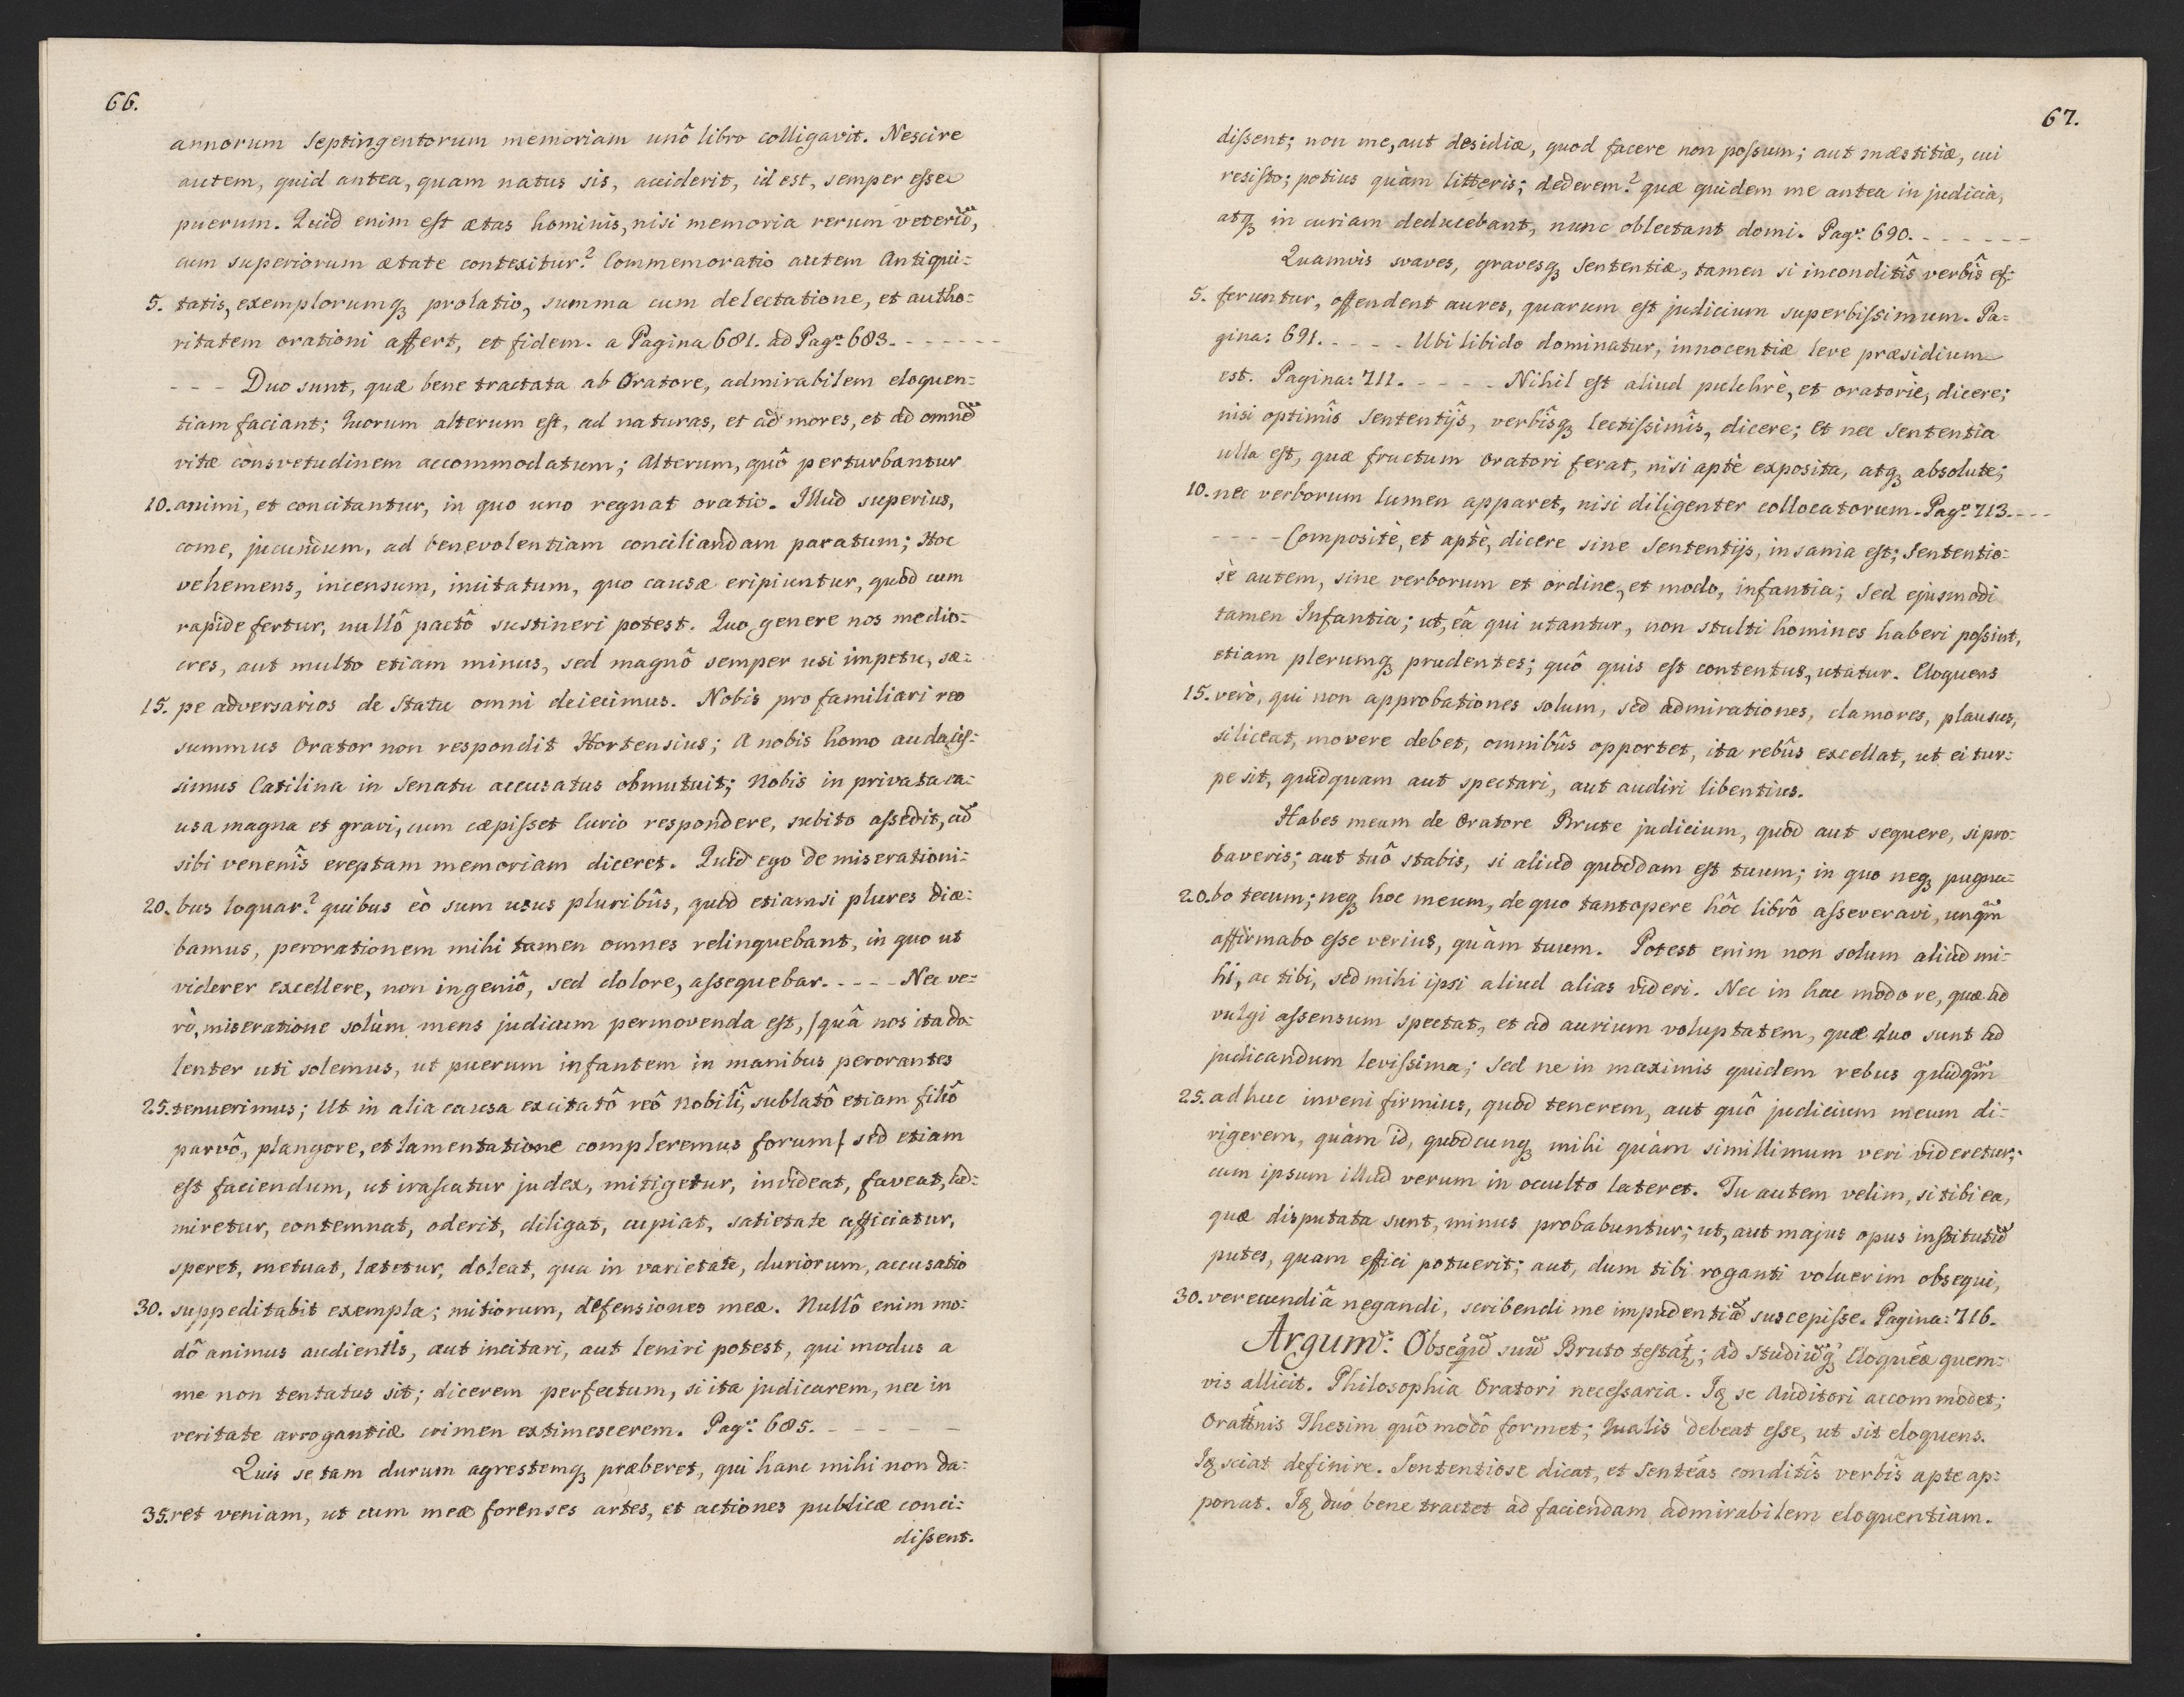 66.
annorum Septingentorum memoriam unô libro colligavit. Nescire
autem, quid antea, quam natus sis, acciderit, id est, semper esse
puerum. Quid enim est ætas hominis, nisi memoria rerum veterū,
cum superiorum ætate contexitur? Commemoratio autem Antiqui=
5. tatis, exemplorumq₃ prolatio, summa cum delectatione, et autho=
ritatem orationi affert, et fidem. a Pagina 681. ad Pag: 683. - - - - - -
- - - Duo sunt, quæ bene tractata ab Oratore, admirabilem eloquen=
tiam faciant; Quorum alterum est, ad naturas, et ad mores, et ad omnē
vitæ consvetudinem accommodatum; Alterum, quô perturbantur
10. animi, et concitantur, in quo uno regnat oratio. Illud superius,
come, jucundum, ad benevolentiam conciliandam paratum; Hoc
vehemens, incensum, incitatum, quo causæ eripiuntur, quod cum
rapide fertur, nullô pactô sustineri potest. Quo genere nos medio=
cres, aut multo etiam minus, sed magnô semper usi impetu, sæ=
15. pe adversarios de Statu omni deiecimus. Nobis pro familiari reo
summus Orator non respondit Hortensius; A nobis homo audacis=
simus Catilina in Senatu accusatus obmutuit; Nobis in privata ca=
usa magna et gravi, cum cæpisset Curio respondere, subito assedit, cū
sibi venenîs ereptam memoriam diceret. Quid ego de miserationi=
20. bus loquar? quibus eò sum usus pluribûs, quod etiamsi plures dice=
bamus, perorationem mihi tamen omnes relinquebant, in quo ut
viderer excellere, non ingeniô, sed dolore, assequebar. - - - - Nec ve=
rò, miseratione solùm mens judicum permovenda est, /quâ nos ita do=
lenter uti solemus, ut puerum infantem in manibus perorantes
25. tenuerimus; Ut in alia causa excitatô reô nobilî, sublatô etiam filiô
parvô, plangore, et lamentatione compleremus forum/ sed etiam
est faciendum, ut irascatur judex, mitigetur, invideat, faveat, ad=
miretur, contemnat, oderit, diligat, cupiat, satietate afficiatur,
speret, metuat, lætetur, doleat, qua in varietate, duriorum, accusatio
30. suppeditabit exempla; mitiorum, defensiones meæ. Nullô enim mo=
dô animus audientis, aut incitari, aut leniri potest, qui modus a
me non tentatus sit; dicerem perfectum, si ita judicarem, nec in
veritate arrogantiæ crimen extimescerem. Pag: 685. - - - - -
Quis se tam durum agrestemq₃ præberet, qui hanc mihi non da=
35. ret veniam, ut cum meæ forenses artes, et actiones publicæ conci=
dissent.
67.
dissent; non me, aut desidiæ, quod facere non possum; aut mæstitiæ, cui
resisto; potius quàm litteris; dederem? quæ quidem me antea in judicia,
atq₃ in curiam deducebant, nunc oblectant domi. Pag: 690. - - - - - -
Quamvis svaves, gravesq₃ Sententiæ, tamen si inconditîs verbîs ef=
5. feruntur, offendent aures, quarum est judicium superbissimum. Pa=
gina: 691. - - - - Ubi libido dominatur, innocentiæ leve præsidium
est. Pagina: 711. - - - - Nihil est aliud pulchrè, et oratoriè, dicere;
nisi optimîs Sententijs, verbîsq₃ lectissimîs, dicere; Et nec Sententia
ulla est, quæ fructum Oratori ferat, nisi aptè exposita, atq₃ absolute;
10. nec verborum lumen apparet, nisi diligenter collocatorum. Pag: 713. - - -
- - - - Compositè, et aptè, dicere sine Sententijs, insania est; Sententio=
sè autem, sine verborum et ordine, et modo, infantia; Sed ejusmodi
tamen Infantia; ut, eâ qui utantur, non stulti homines haberi possint,
etiam plerumq₃ prudentes; quô quis est contentus, utatur. Eloquens
15. verò, qui non approbationes solum, sed admirationes, clamores, plausus,
si liceat, movere debet, omnibûs opportet, ita rebûs excellat, ut ei tur=
pe sit, quidquam aut spectari, aut audiri libentius.
Habes meum de Oratore Brute judicium, quod aut sequere, si pro=
baveris; aut tuô stabis, si aliud quoddam est tuum; in quo neq₃ pugna=
20. bo tecum; neq₃ hoc meum, de quo tantopere hôc librô asseveravi, unqm̃
affirmabo esse verius, quàm tuum. Potest enim non solum aliud mi=
hi, ac tibi, sed mihi ipsi aliud alias videri. Nec in hac modo re, quæ ad
vulgi assensum spectat, et ad aurium voluptatem, quæ duo sunt ad
judicandum levissima; Sed ne in maximis quidem rebus quidqm̃
25. adhuc inveni firmius, quod tenerem, aut quô judicium meum di=
rigerem, quàm id, quodcunq₃ mihi quàm simillimum veri videretur;
cum ipsum illud verum in occulto lateret. Tu autem velim, si tibi ea,
quæ disputata sunt, minus probabuntur; ut, aut majus opus institutū
putes, quam effici potuerit; aut, dum tibi roganti voluerim obsequi,
30. verecundiâ negandi, scribendi me impudentiã suscepisse. Pagina: 716.
Argum: Obseqũ suũ Bruto testat̃; ad Studiũq₃ Eloquẽæ quem=
vis allicit. Philosophia Oratori necessaria. Iq₃ se Auditori accommodet;
Orat̃nis Thesim quô modô formet; Qualis debeat esse, ut sit eloquens.
Iq₃ sciat definire. Sententiose dicat, et Sentẽas conditîs verbîs apte ap=
ponat. Iq₃ duo bene tractet ad faciendam admirabilem eloquentiam.